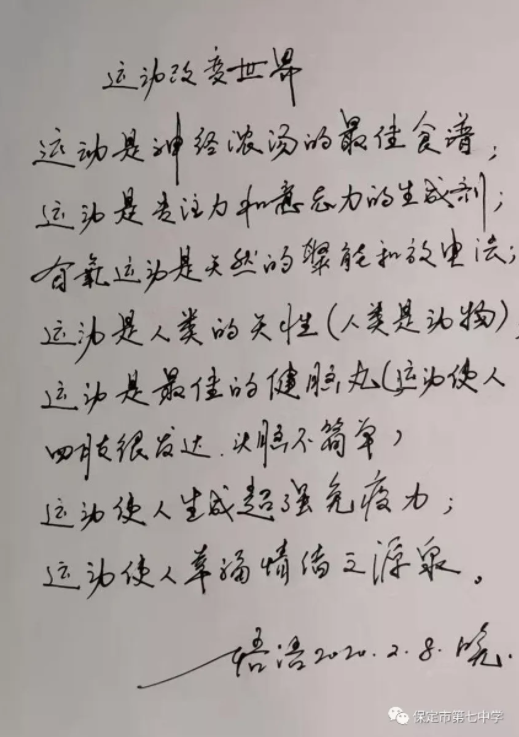 运动改变世界
运动是神经浓汤的最佳食谱；
运动是专注力和意志力的生成剂；
有氧运动是天然的聚能和放电法；
运动是人类的天性(人类是动物)
运动是最佳的健脑丸(运动使人
四肢很发达.头脑不简单)
运动使人生成超强免疫力；
运动使人幸福情绪之源泉。
悟语2020.2.8.晓.
保定市第七中学